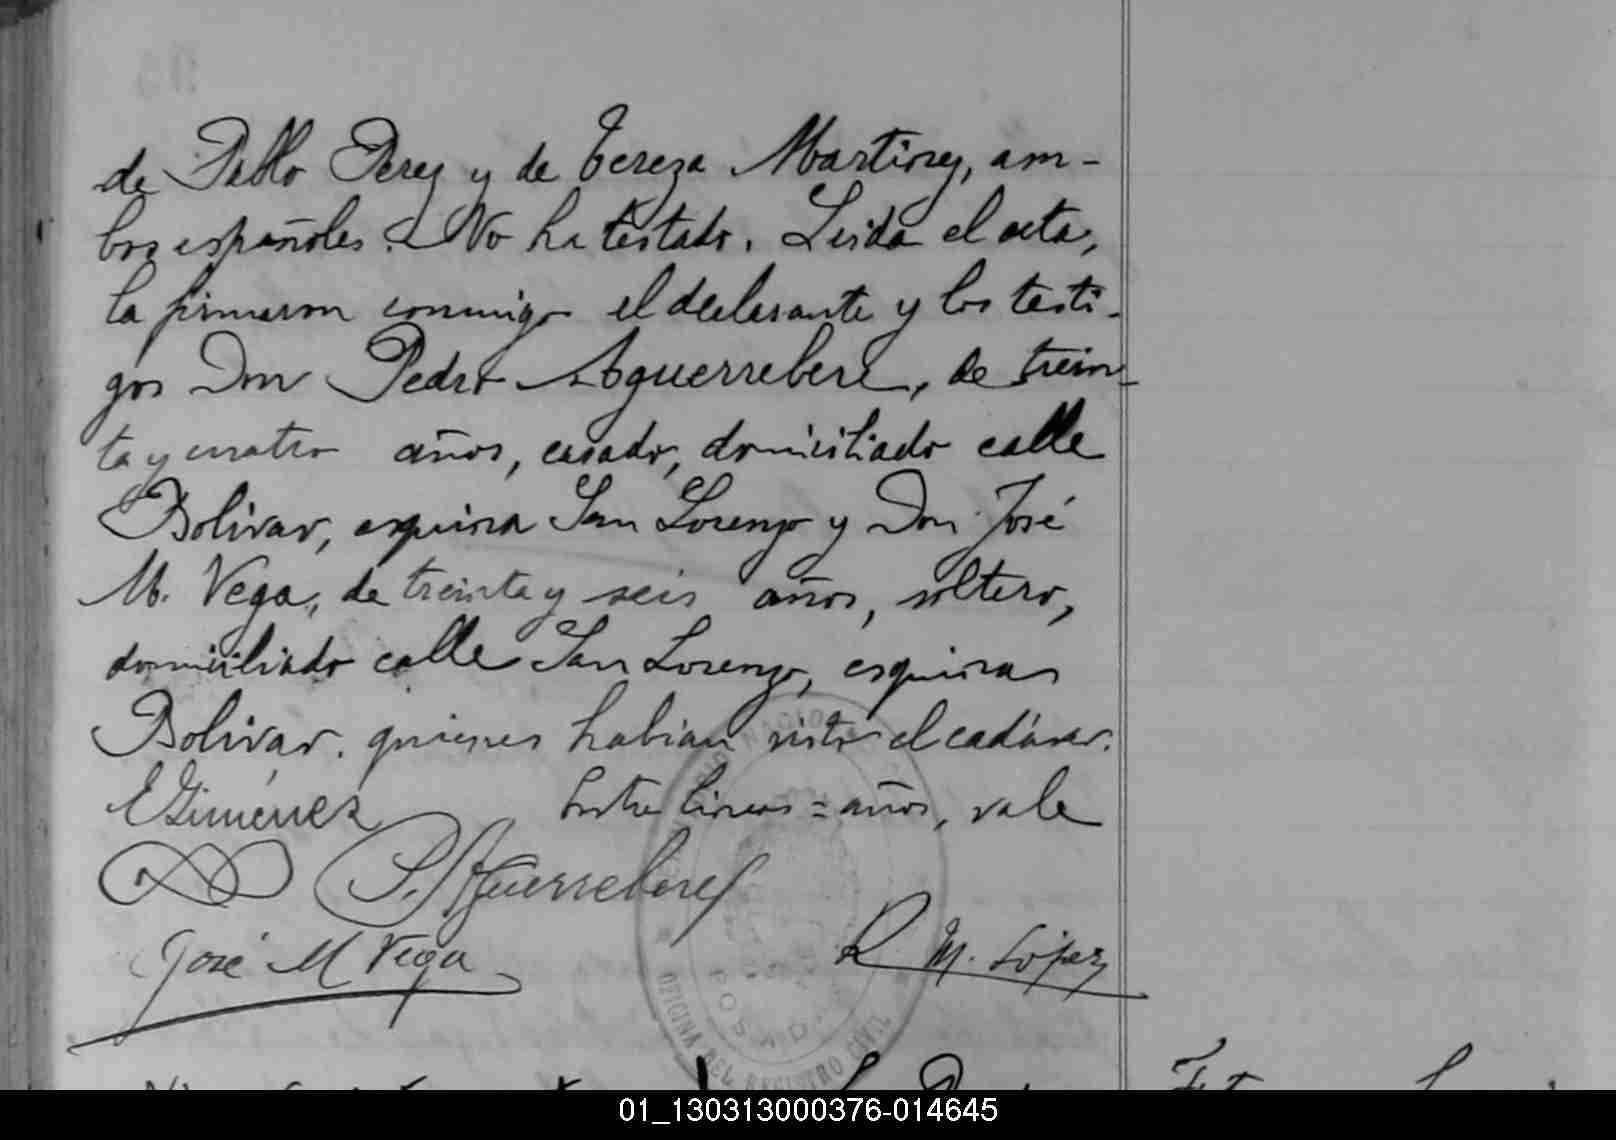 de Pablo Perez y de Tereza Martinez, am-
bos españoles. No ha testado. Leida el acta,
la firmaron conmigo el declarante y los testi-
gos Don Pedro Aguerrebere, de trein-
ta y cuatro años, casado, domiciliado calle
Bolivar, esquina San Lorenzo y Don José
M. Vega, de treinta y seis años, soltero,
domiciliado calle San Lorenzo, esquina
Bolivar. quienes habian visto el cadáver.
E Giménez Entre lineas = años, vale
P. Aguerrebere
José M Vega
R. M. López
OFICINA DEL REGISTRO CIVIL
POSADAS
01_130313000376-014645